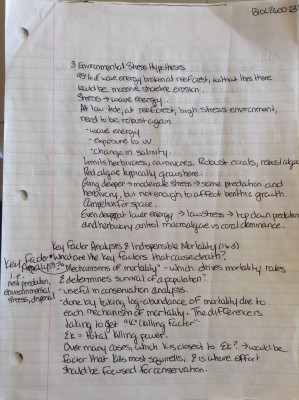 BIOL2600 23
3 Environmental Stress Hypotheses
95% of wave energy broken at reef crest, without this there
would be massive shoreline erosion.
Stress → wave energy.
At low tide, at reef crest, high stress environment,
need to be robust again
-wave energy
-exposure to UV
-change in salinity.
Limits herbivores, carnivores. Robust corals, robust algae
Red algae typically grows here.
Going deeper → moderate stress → some predation and
herbivory, but not enough to affect benthic growth.
Competition for space.
Even deeper at lower energy → low stress → top down predation
and herbivory macroalgae vs coral dominance.
Key Factor Analysis & Indispensible Mortality
Key Factor Analysis
•what are the key factors that cause death?
"Mechanisms of mortality" - which drives mortality rates
& determines survival of a population?
i.e. nest predation, environmental stress,
-useful in conservation analysis.
-done by taking log-abundance of mortality due to
each mechanism of mortality. The difference is
taking to get "k" "killing factor"
Σk = total "killing power."
Over many cases, which k is closest to Σk? → would be
factor that kills most squirrels, & is where effort
should be focused for conservation.